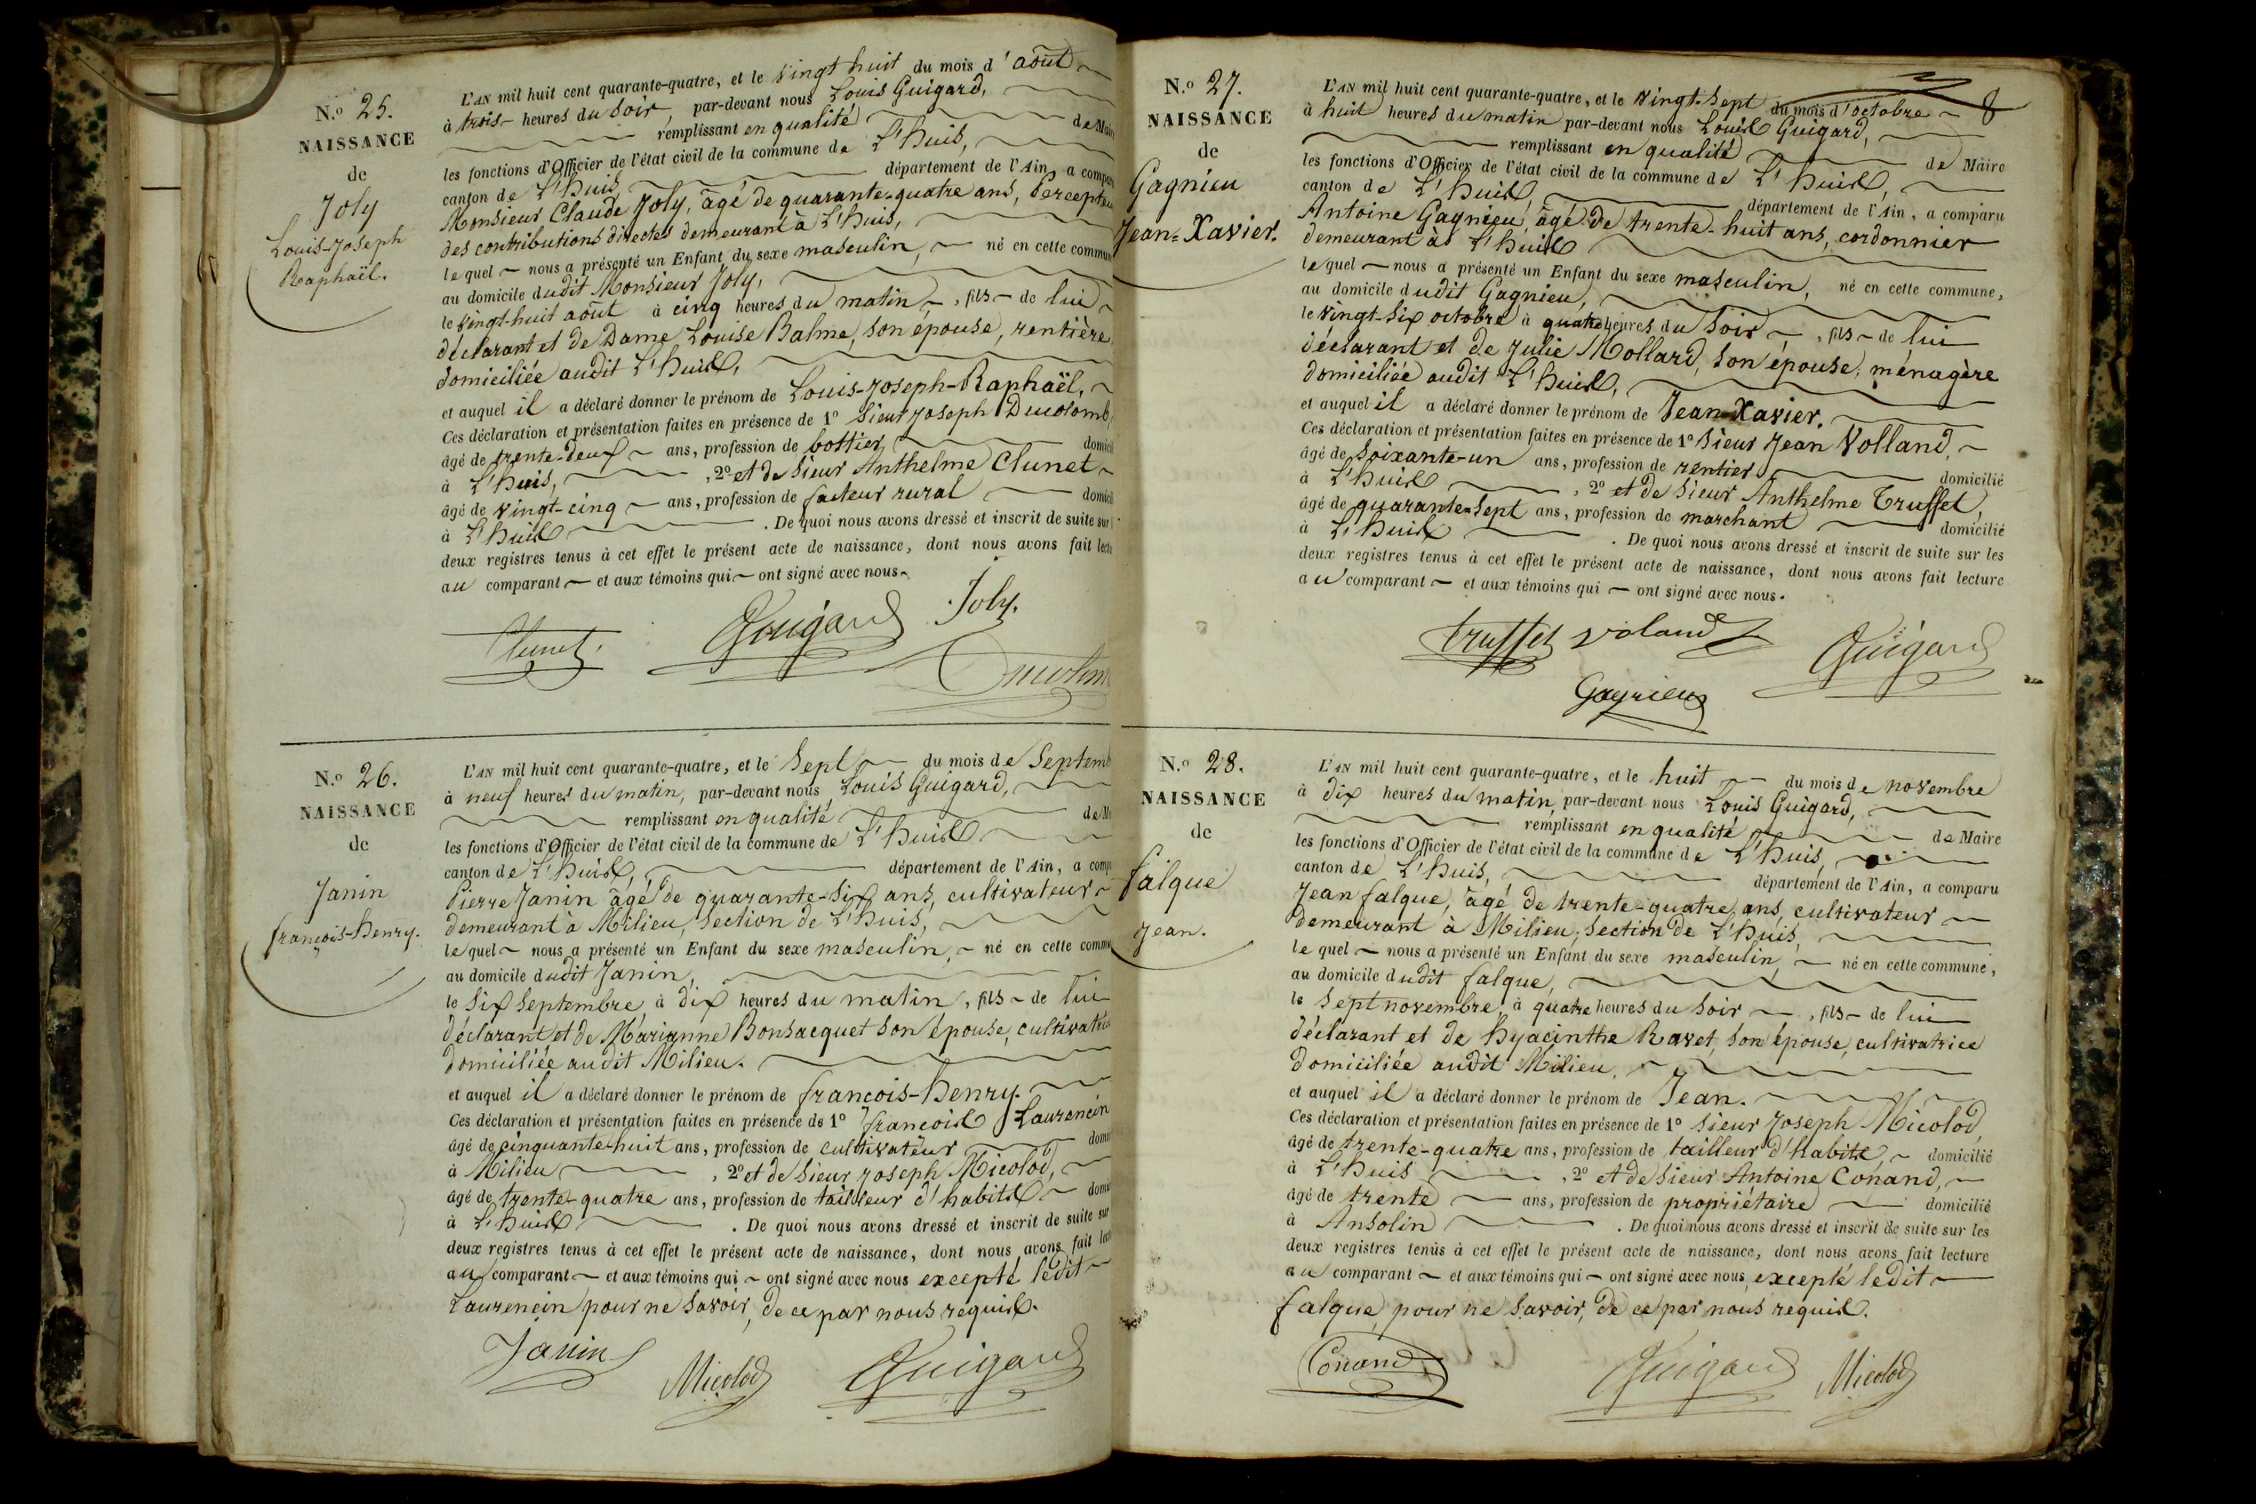 N.o 25.
NAISSANCE
de
Joly
Louis-Joseph
Raphaël.
L'AN mil huit cent quarante-quatre, et le vingt huit du mois d'août
à trois heures du soir, par-devant nous Louis Guigard,
remplissant en qualité de Maire
les fonctions d'Officier de l'état civil de la commune de L'huis,
canton de L'huis, département de l'Ain, a compa
Monsieur Claude Joly, âgé de quarante-quatre ans, Percepteu
des contributions directes demeurant à L'huis,
lequel nous a présenté un Enfant du sexe masculin, né en cette commun
au domicile dudit Monsieur Joly,
le vingt-huit août à cinq heures du matin, fils de lui
déclarant et de Dame Louise Balme, son épouse, rentière
domiciliée audit L'huis,
et auquel il a déclaré donner le prénom de Louis-Joseph-Raphaël,
Ces déclaration et présentation faites en présence de 1o Sieur Joseph Ducolomb,
âgé de trente-deux ans, profession de bottier domicil
à L'huis, , 2o et de Sieur Anthelme Clunet
âgé de vingt-cinq ans, profession de facteur rural domicil
à L'huis . De quoi nous avons dressé et inscrit de suite sur l
deux registres tenus à cet effet le présent acte de naissance, dont nous avons fait lectu
au comparant et aux témoins qui ont signé avec nous.
Clunet. Guigard Joly.
Ducolom
N.o 26.
NAISSANCE
de
Janin
françois-henry.
L'AN mil huit cent quarante-quatre, et le Sept du mois de Septemb
à neuf heures du matin, par-devant nous Louis Guigard,
remplissant en qualité de M
les fonctions d'Officier de l'état civil de la commune de L'huis
canton de L'huis, département de l'Ain, a comp
Pierre Janin âgé de quarante-six ans, cultivateur
demeurant à Milieu, Section de L'huis,
lequel nous a présenté un Enfant du sexe masculin, né en cette commu
au domicile dudit Janin,
le Six Septembre à dix heures du matin, fils de lui
déclarant et de Marianne Bonsacquet son épouse, cultivatric
domiciliée audit Milieu.
et auquel il a déclaré donner le prénom de françois-henry.
Ces déclaration et présentation faites en présence de 1o françois Laurencin
âgé de cinquante-huit ans, profession de cultivateur domi
à Milieu , 2o et de Sieur Joseph Micolod,
âgé de trente-quatre ans, profession de tailleur d'habits domi
à L'huis . De quoi nous avons dressé et inscrit de suite sur
deux registres tenus à cet effet le présent acte de naissance, dont nous avons fait lect
au comparant et aux témoins qui ont signé avec nous excepté ledit
Laurencin pour ne savoir, de ce par nous requis.
Janin Micolod Guigard
N.o 27.
NAISSANCE
de
Gagnieu
Jean-Xavier.
8
L'AN mil huit cent quarante-quatre, et le vingt-sept du mois d'octobre
à huit heures du matin par-devant nous Louis Guigard,
remplissant en qualité de Maire
les fonctions d'Officier de l'état civil de la commune de L'huis,
canton de L'huis, département de l'Ain, a comparu
Antoine Gagnieu, âgé de trente-huit ans, cordonnier
demeurant à L'huis
lequel nous a présenté un Enfant du sexe masculin, né en cette commune,
au domicile dudit Gagnieu,
le vingt-six octobre à quatre heures du Soir, fils de lui
déclarant et de Julie Mollard, son épouse, ménagère
domiciliée audit L'huis,
et auquel il a déclaré donner le prénom de Jean-Xavier.
Ces déclaration et présentation faites en présence de 1o Sieur Jean Volland,
âgé de Soixante-un ans, profession de rentier domicilié
à L'huis , 2o et de Sieur Anthelme Truffet,
âgé de quarante-sept ans, profession de marchant domicilié
à L'huis . De quoi nous avons dressé et inscrit de suite sur les
deux registres tenus à cet effet le présent acte de naissance, dont nous avons fait lecture
au comparant et aux témoins qui ont signé avec nous.
truffet voland Guigard
Gagnieu
N.o 28.
NAISSANCE
de
falque
Jean.
L'AN mil huit cent quarante-quatre, et le huit du mois de novembre
à dix heures du matin, par-devant nous Louis Guigard,
remplissant en qualité de Maire
les fonctions d'Officier de l'état civil de la commune de L'huis,
canton de L'huis, département de l'Ain, a comparu
Jean falque, âgé de trente-quatre ans, cultivateur
demeurant à Milieu, Section de L'huis,
lequel nous a présenté un Enfant du sexe masculin, né en cette commune,
au domicile dudit falque,
le Sept novembre à quatre heures du Soir, fils de lui
déclarant et de hyacinthe Ravet, son épouse, cultivatrice
domiciliée audit Milieu,
et auquel il a déclaré donner le prénom de Jean.
Ces déclaration et présentation faites en présence de 1o Sieur Joseph Micolod,
âgé de trente-quatre ans, profession de tailleur d'habits, domicilié
à L'huis , 2o et de Sieur Antoine Conand,
âgé de trente ans, profession de propriétaire domicilié
à Ansolin . De quoi nous avons dressé et inscrit de suite sur les
deux registres tenus à cet effet le présent acte de naissance, dont nous avons fait lecture
au comparant et aux témoins qui ont signé avec nous, excepté ledit
falque, pour ne savoir, de ce par nous requis.
Conand Guigard Micolod